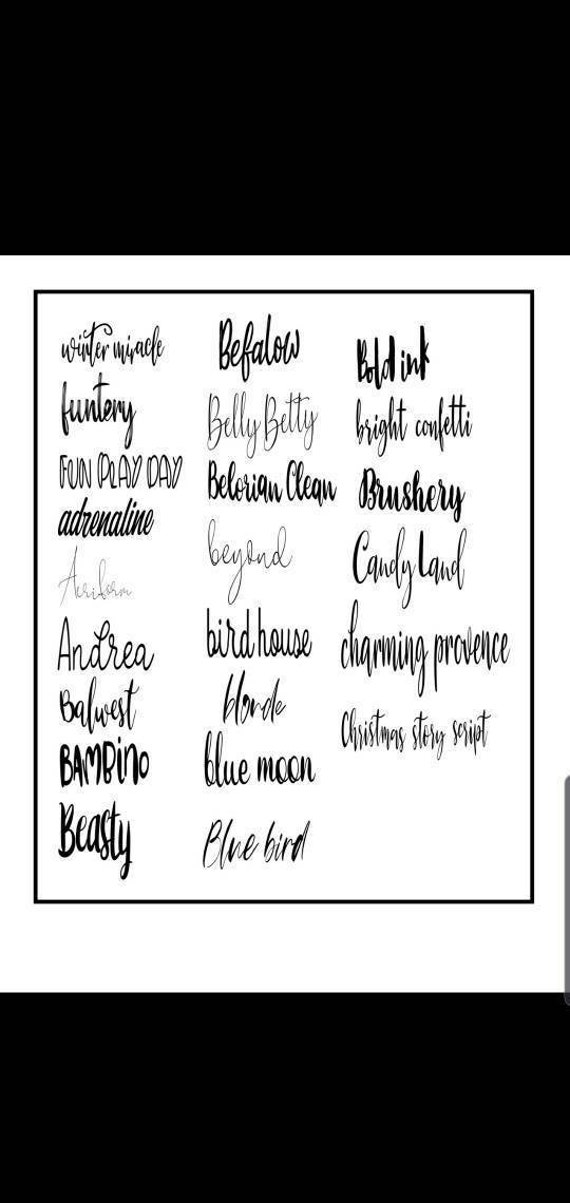 winter miracle
funtery
FUN PLAY DAY
adrenaline
Aeriform
Andrea
Balwest
BAMBiNO
Beasty
Befalow
Belly Betty
Belorian Clean
beyond
birdhouse
blonde
blue moon
Blue bird
Bold ink
bright confetti
Brushery
Candy Land
charming provence
Christmas story script